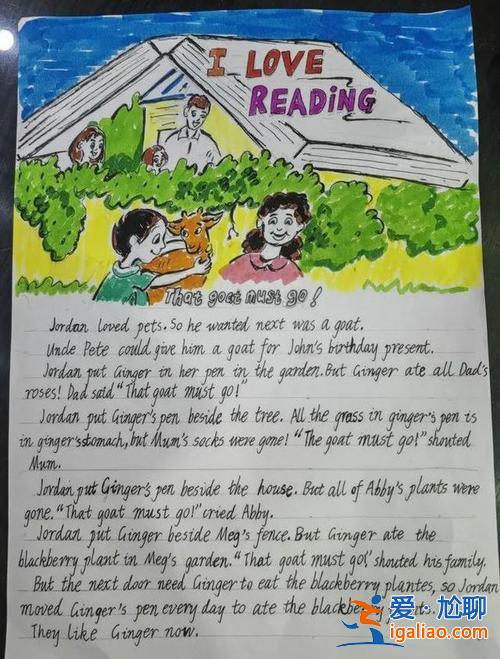 I LOVE
READING
That goat must go!
Jordan loved pets. So he wanted next was a goat.
Uncle Pete could give him a goat for John's birthday present.
Jordan put Ginger in her pen in the garden. But Ginger ate all Dad's
roses! Dad said "That goat must go!"
Jordan put Ginger's pen beside the tree. All the grass in ginger's pen is
in ginger's stomach, but Mum's socks were gone! "The goat must go!" shouted
Mum.
Jordan put Ginger's pen beside the house. But all of Abby's plants were
gone. "That goat must go!" cried Abby.
Jordan put Ginger beside Meg's fence. But Ginger ate the
blackberry plant in Meg's garden. "That goat must go!" shouted his family.
But the next door need Ginger to eat the blackberry plantes, so Jordan
moved Ginger's pen every day to ate the blackberry
They like Ginger now.
爱·尬聊
igaliao.com